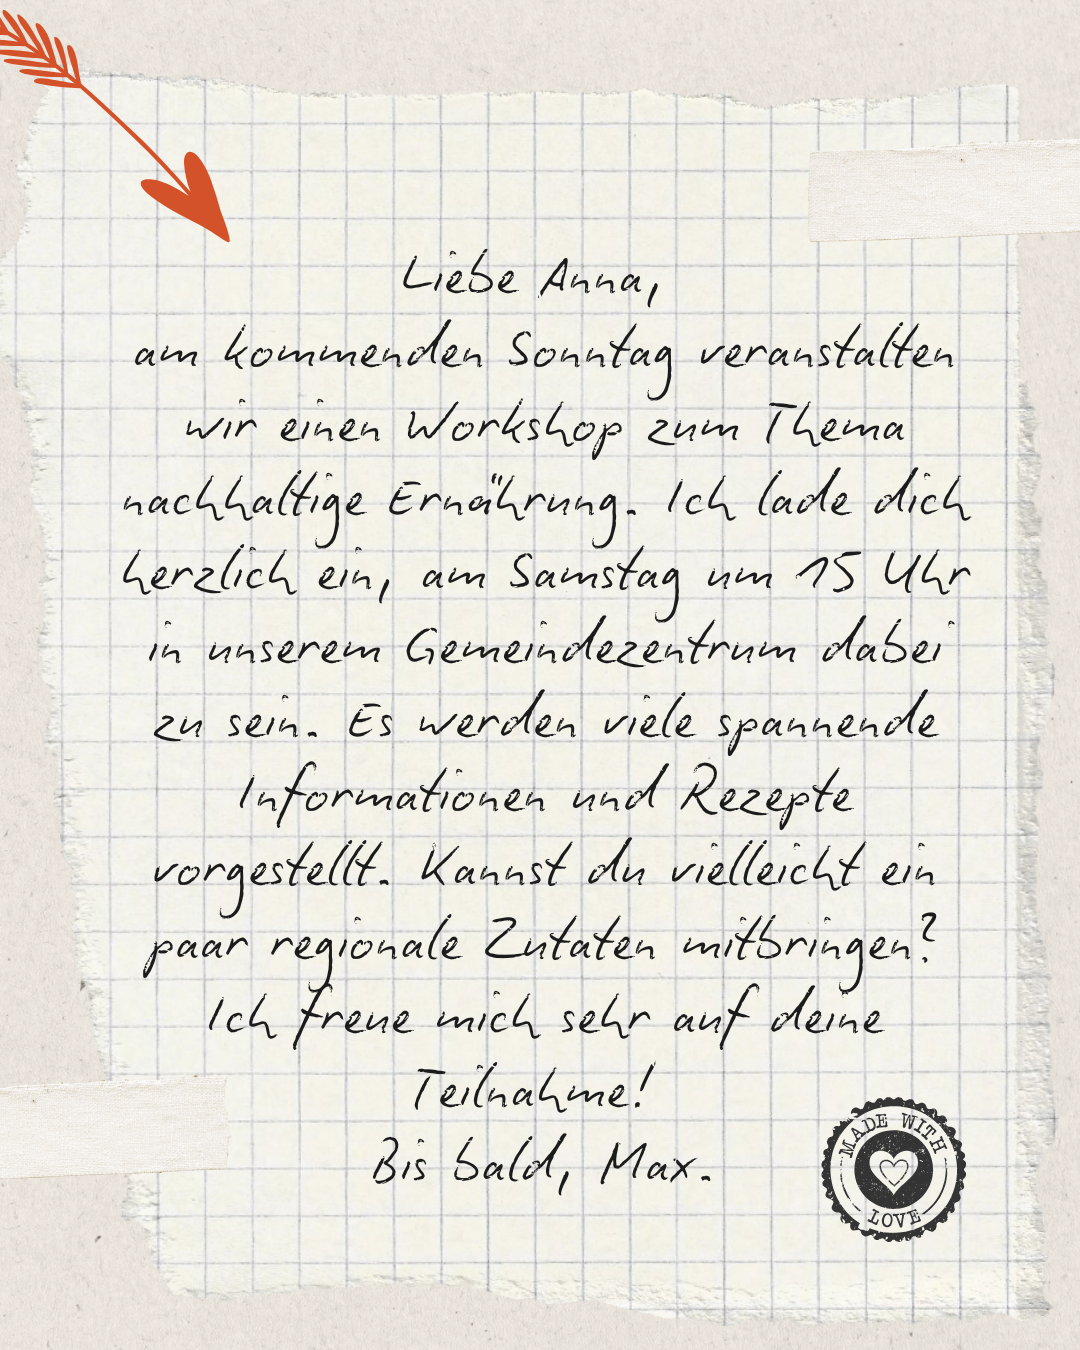 Liebe Anna,
am kommenden Sonntag veranstalten
wir einen Workshop zum Thema
nachhaltige Ernährung. Ich lade dich
herzlich ein, am Samstag um 15 Uhr
in unserem Gemeindezentrum dabei
zu sein. Es werden viele spannende
Informationen und Rezepte
vorgestellt. Kannst du vielleicht ein
paar regionale Zutaten mitbringen?
Ich freue mich sehr auf deine
Teilnahme!
Bis bald, Max.
MADE WITH
LOVE